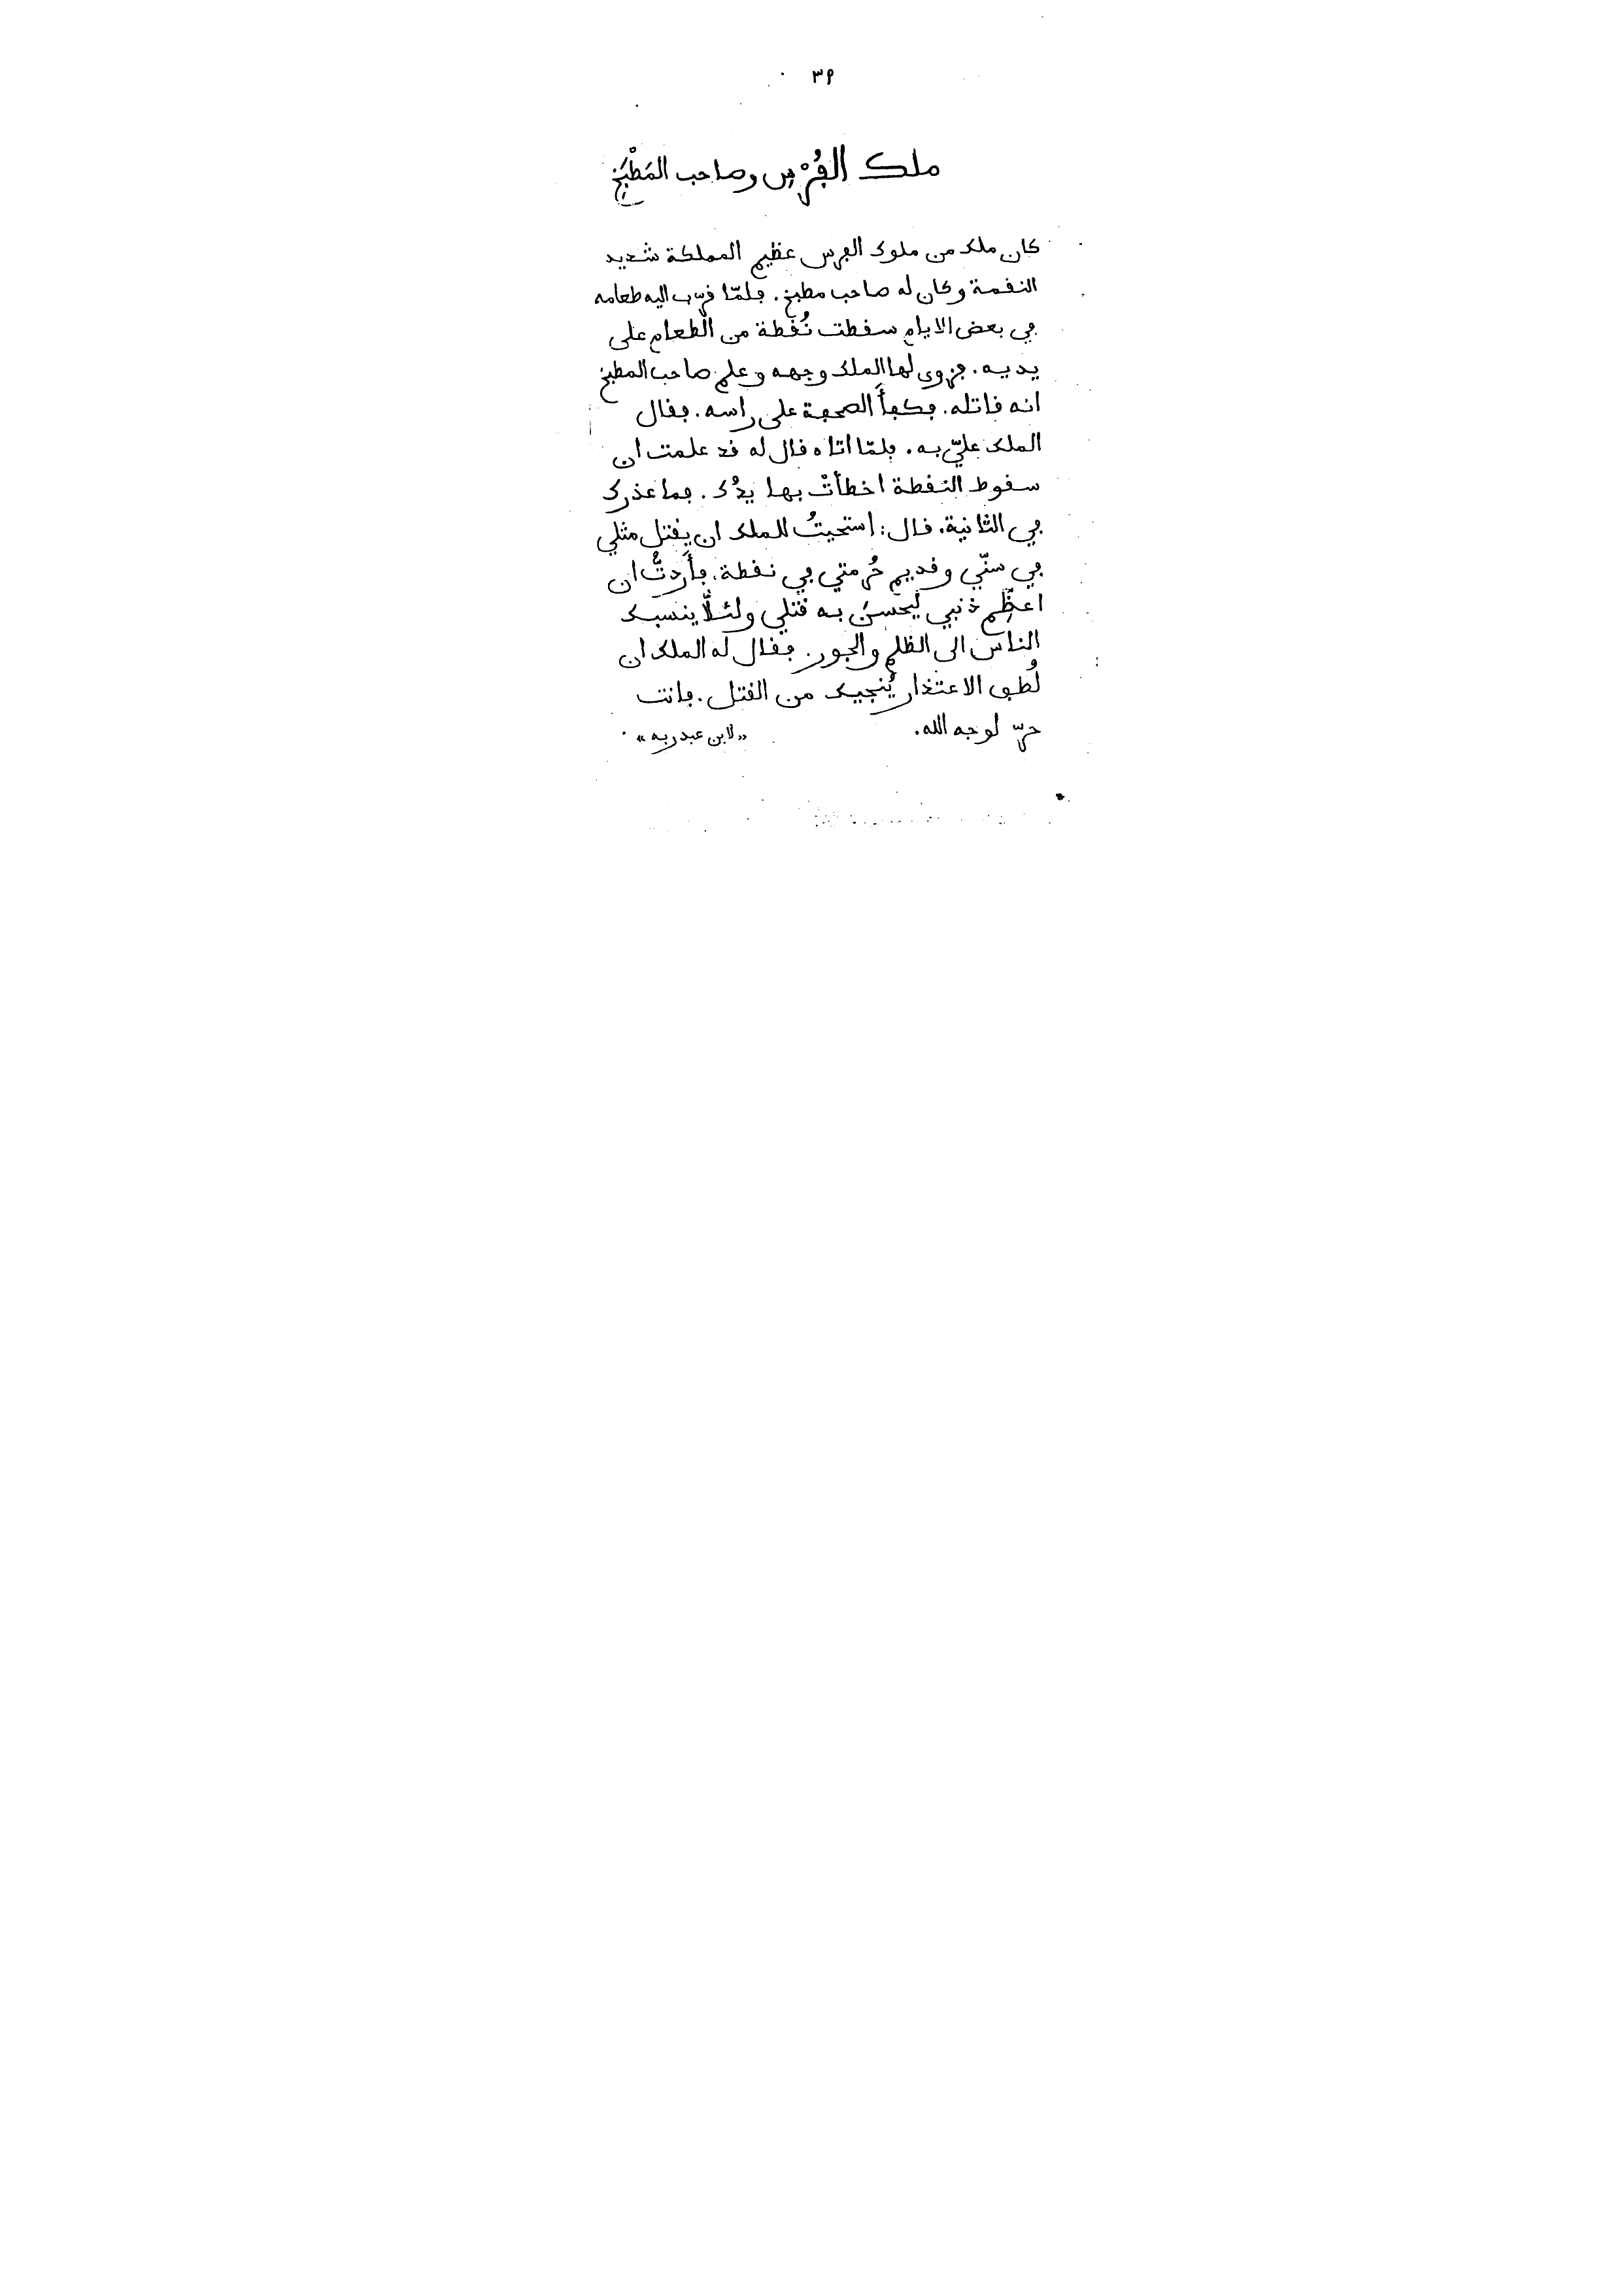 ٣٩
ملك الفُرْس وصاحب المَطْبَخ
كان ملك من ملوك الفرس عظيم المملكة شديد
النقمة وكان له صاحب مطبخ. فلمّا قرّب اليه طعامه
في بعض الايام سقطت نُقطة من الطعام على
يديه. فزوى لها الملك وجهه وعلم صاحب المطبخ
انه قاتله. فكفأَ الصحفة على راسه. فقال
الملك عليّ به. فلمّا اتاه قال له قد علمت ان
سقوط النقطة اخطأتْ بها يدُك. فما عذرك
في الثانية. قال: استحيتُ للملك ان يقتل مثلي
في سنّي وقديم حُرمتي في نقطة. فأَردتُّ ان
اعظِّم ذنبي ليحسنَ به قتلي ولئلّا ينسبك
الناس الى الظلم والجور. فقال له الملك ان
لُطف الاعتذار يُنجيك من القتل. فانت
حرّ لوجه الله. «لابن عبد ربه»